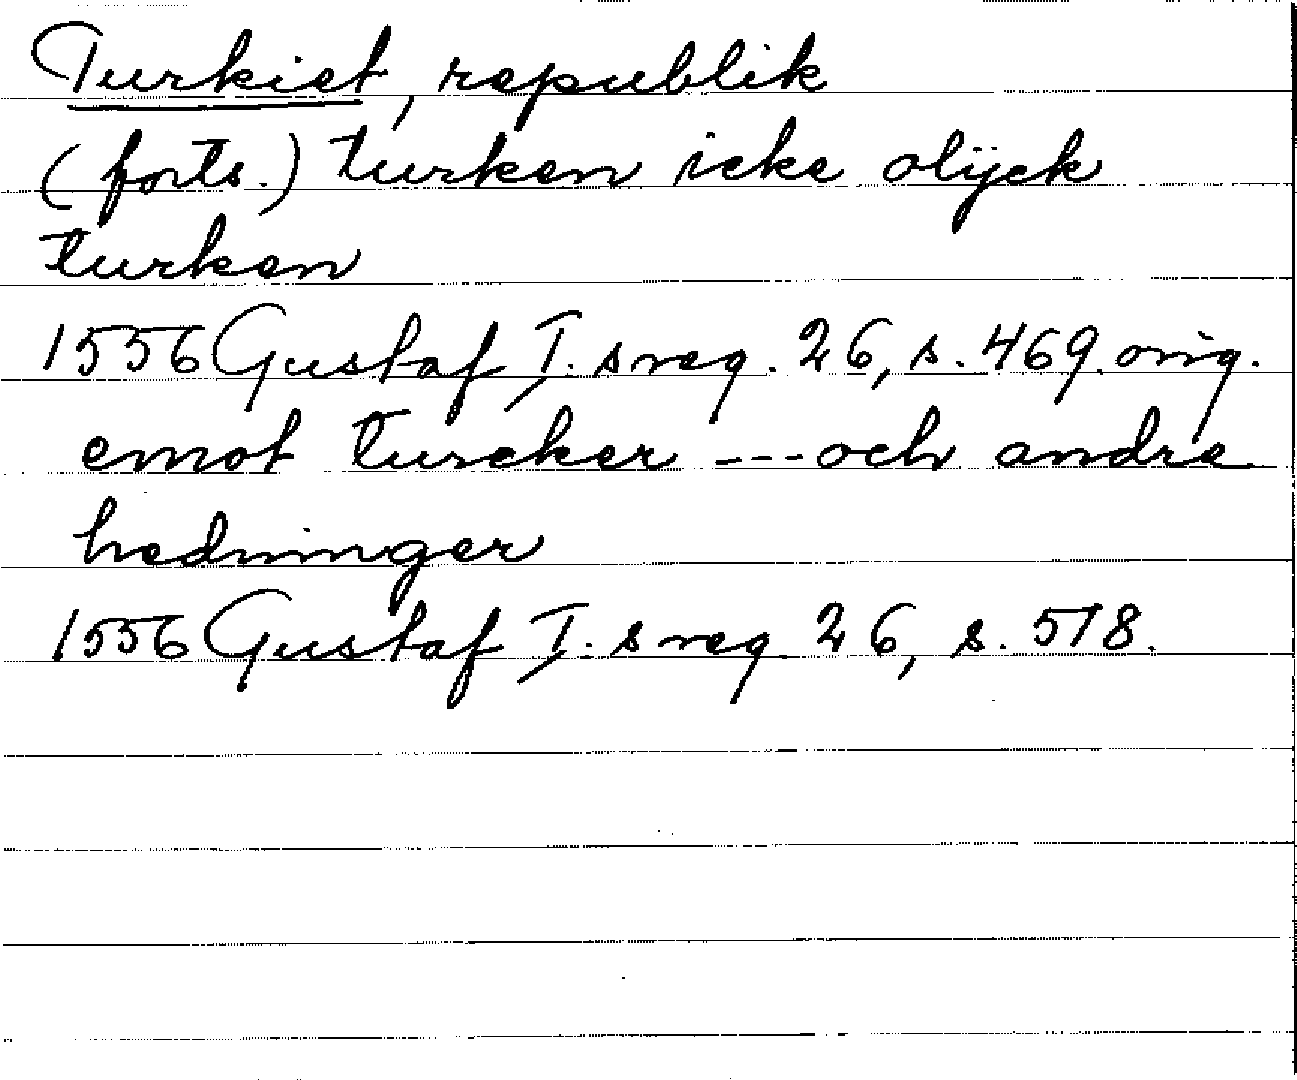 Turkiet, republik
(forts.) turken icke olijck
turken
1556 Gustaf I. s reg. 26, s. 469. orig.
emot turcker --- och andre
hedninger
1556 Gustaf I. s reg. 26, s. 518.